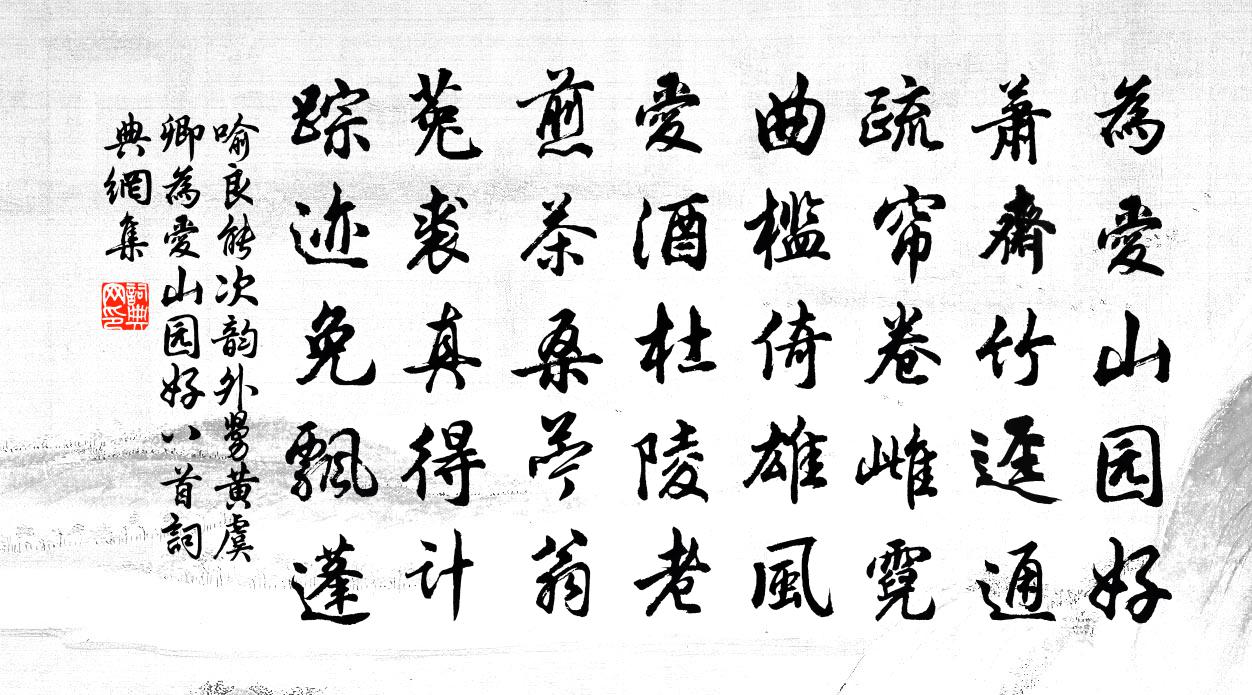 為愛山园好
蕭齋竹逕通
疏帘卷雌霓
曲檻倚雄風
愛酒杜陵老
煎茶桑苧翁
菟裘真得計
踪迹免飄蓬
喻良能次韵外舅黄虞
卿為愛山园好八首詞
典網集
詞典
网印